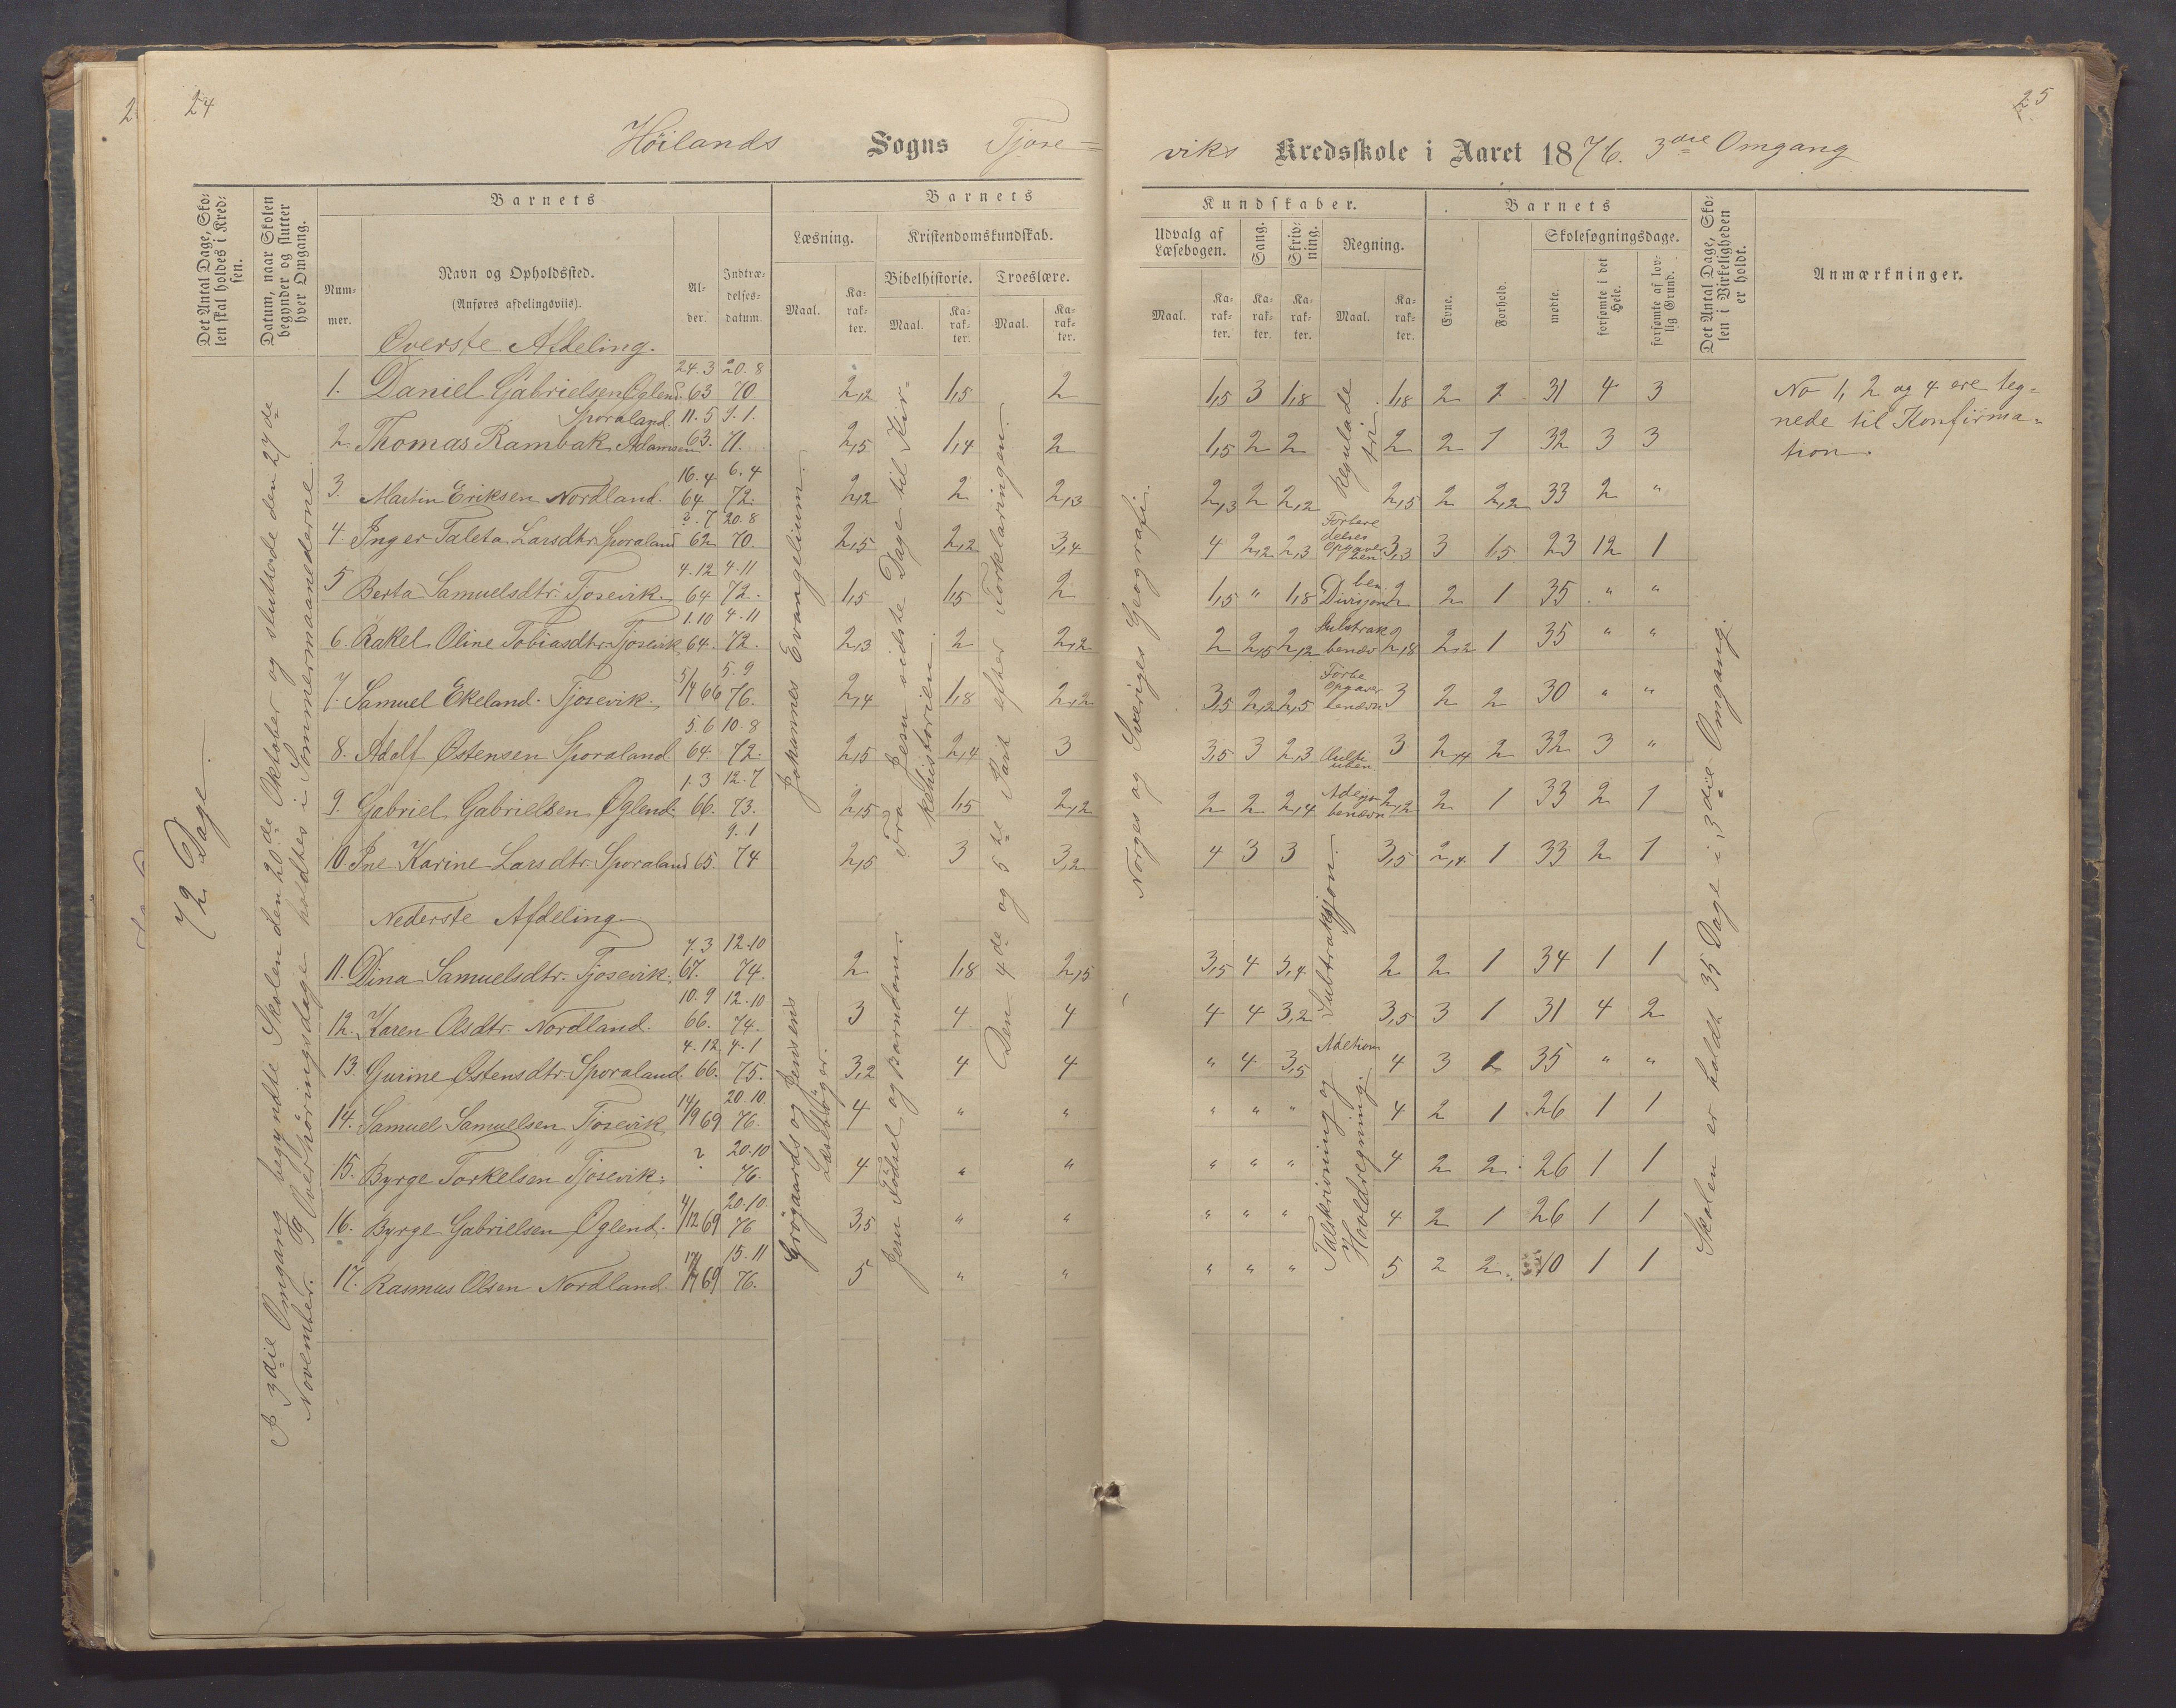 24
Höilands Sogns Tjose=
Det Antal Dage, Sko=
len skal holdes i Kred=
sen.
Datum, naar Skolen
begynder og slutter
hver Omgang.
Barnets
Barnets
Num=
mer.
Navn og Opholdssted.
(Anføres afdelingsviis).
Al=
der.
Indtræ=
delses=
datum.
Læsning.
Kristendomskundskab.
Bibelhistorie.
Troeslære.
Maal.
Ka=
rak=
ter.
Maal.
Ka=
rak=
ter.
Maal.
Ka=
rak=
ter.
72 Dage.
I 3die Omgang begyndte Skolen den 20de Oktober og sluttede den 27de
November. Og Overhøringsdage holdtes i Sommermaanederne.
Johannes Evangelium.
Grögaards og Jensens
Læsebøger.
Fra Jesu sidste Dage til Kir=
kehistorien.
Jesu Fødsel og Barndom.
Den 4de og 5te Part efter Forklaringen.
Øverste Afdeling.
1. Daniel Gabrielsen Oglend. 24.3 63 20.8 70 2,2 1,5 2
2. Thomas Rambak Adamsen Sporaland. 11.5 63. 9.1. 71. 2,5 1,4 2
3. Martin Eriksen Nordland. 16.4 64 6.4 72. 2,2 2 2,3
4. Inger Taleta Larsdtr. Sporaland ?.7 62 20.8 70. 2,5 2,2 3,4
5 Berta Samuelsdtr. Tjosevik. 4.12 64 4.11 72. 1,5 1,5 2
6. Rakel Oline Tobiasdtr. Tjosevik 1.10 64. 4.11 72. 2,3 2 2,2
7. Samuel Ekeland. Tjosevik. 5/4 66 5.9 76. 2,4 1,8 2,2
8. Adolf Østensen Sporaland 5.6 64. 10.8 72. 2,5 2,4 3
9. Gabriel Gabrielsen Oglend. 1.3 66. 12.7 73. 2,5 1,5 2,2
10. Ine Karine Larsdtr. Sporaland 65. 9.1 74 2,5 3 3,2
Nederste Afdeling
11. Dina Samuelsdtr. Tjosevik. 7.3 67. 12.10 74. 2 1,8 2,5
12. Karen Olsdtr. Nordland. 10.9 66. 12.10 74. 3 4 4
13. Gurine Østensdtr. Sporaland. 4.12 66. 4.1 75. 3,2 4 4
14. Samuel Samuelsen Tjosevik 14/9 69 20.10. 76. 4 " "
15. Byrge Torkelsen Tjosevik. ? 20.10 76. 4 " "
16. Byrge Gabrielsen Oglend. 4/12 69 20.10. 76 3,5 " "
17. Rasmus Olsen Nordland. 69 15.11 76. 5 " "
25
viks Kredsskole i Aaret 1876. 3die Omgang
Kundskaber.
Barnets
Udvalg af
Læsebogen.
Sang.
Skriv=
ning.
Regning.
Skolesøgningsdage.
Maal.
Ka=
rak=
ter.
Ka=
rak=
ter.
Ka=
rak=
ter.
Maal.
Ka=
rak=
ter.
Evne.
Forhold.
mødte.
forsømte i det
Hele.
forsømte af lov=
lig Grund.
Det Antal Dage, Sko=
len i Virkeligheden
er holdt.
Anmærkninger.
Norges og Sveriges Geografi.
Regulade
tri
Subtraksjon.
Talskrivning og
Hovedregning.
Skolen er holdt 35 Dage i 3die Omgang.
1,5 3 1,8 1,8 2 2 31 4 3
1,5 2 2 2 2 1 32 3 3
2,3 2 2,2 2,5 2 2,2 33 2 "
4 2,2 2,3 3,3 3 1,5 23 12 1
1,5 " 1,8 ben. Divisjon 2 2 1 35 " "
2 2,5 2,2 Subtrak benæv 2,8 2,2 1 35 " "
3,5 2,2 2,5 Forbe opgaver benævn 3 2 2 30 " "
3,5 3 2,3 3 2,4 2 32 3 "
2 2 2,4 Adisjo benævn 2,2 2 1 33 2 1
4 3 3 3,5 2,4 1 33 2 1
3,5 4 3,4 2 2 1 34 1 1
4 4 3,2 3,5 3 1 31 4 2
" 4 3,5 Adetion 4 3 1 35 " "
" " " 4 2 1 26 1 1
" " " 4 2 2 26 1 1
" " " 4 2 1 26 1 1
" " " 5 2 2 10 1 1
No 1, 2 og 4 ere teg=
nede til Konfirma=
tion.